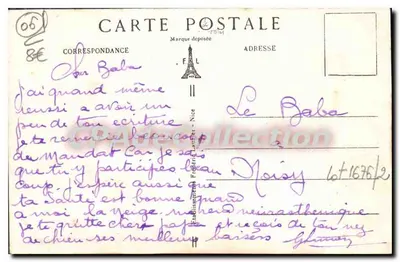 06
8€
CARTE POSTALE
Marque déposée
CORRESPONDANCE
ADRESSE
F L
Cher Baba
j'ai quand même
reussi a avoir un
peu de ton ecriture
je te remercie beaucoup
du Mandat Car je sais
que tu y participes beau
coup. j'espère aussi que
ta Santé est bonne quand
a moi la neige me rend neurasthenique
je te quitte cher papa et recois de ton
de chien ses meilleurs baisers
Le Baba
a
Noisy
lot 1676/2